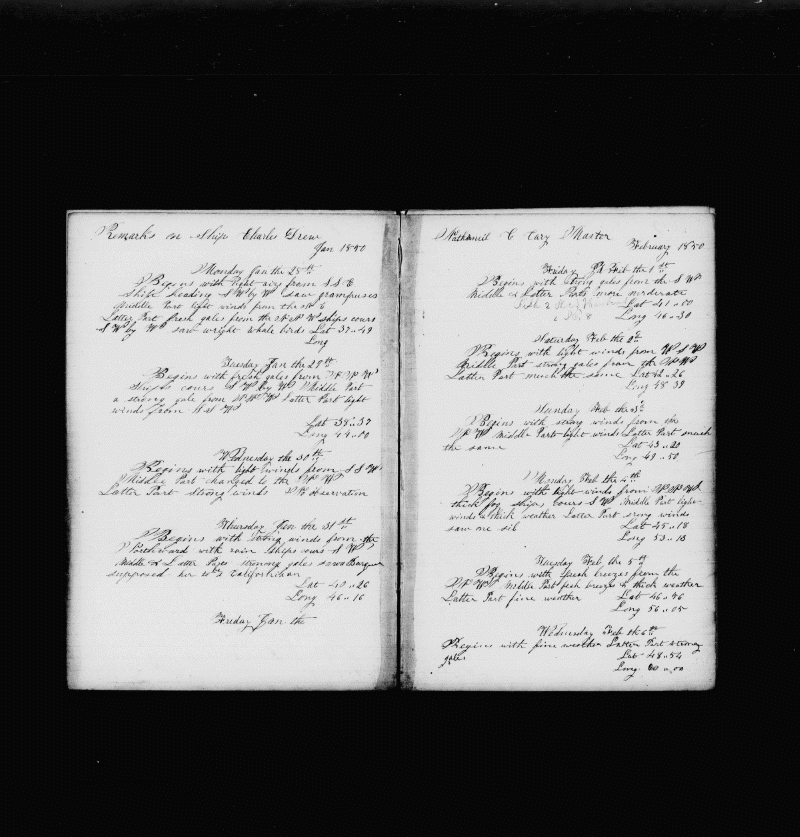 Remarks on Ship Charles Drew
Jan 1850
Monday Jan the 28th
Begins with light airs from S S E
Ship heading S W by W saw grampuses
Middle Part light winds from the N E
Latter Part fresh gales from the N N W ships cours
S W by W saw wright whale birds Lat 37..49
Long
Tuesday Jan the 29th
Begins with fresh gales from N N W
Ships cours S W by W Middle Part
a strong gale from Latter Part light
winds from W S W
Lat 38..37
Long 44..00
Wednesday the 30th
Begins with light winds from S S W
Middle Part changed to the N W
Latter Part strong winds No Observation
Thursday Jan the 31st
Begins with Strong winds from the
Northward with rain ships cours S W
Middle & Latter Parts strong gales saw a Barque
supposed her to a Californian
Lat 40..26
Long 46..16
Friday Jan the
Nathaniel C Cary Master
February 1850
Friday Feb the 1st
Begins with strong gales from the S W
Middle & Latter Parts more moderate
Lat 41..00
Long 46..30
Saturday Feb the 2d
Begins with light winds from W S W
Middle Part strong gales from the N W
Latter Part much the same Lat 42..26
Long 48 39
Sunday Feb the 3d
Begins with strong winds from the
N W Middle Part light winds Latter Part much
the same Lat 43..20
Long 49..50
Monday Feb the 4th
Begins with light winds from N N W
thick fog ships cours S W Middle Part light
winds & thick weather Latter Part strong winds
saw one sil Lat 45..18
Long 53..18
Tuesday Feb the 5th
Begins with fresh breezes from the
N W Middle Part fresh breezes & thick weather
Latter Part fine weather Lat 46..46
Long 56..05
Wednesday Feb the 6th
Begins with fine weather Latter Part strong
gales Lat 48..54
Long 60..00